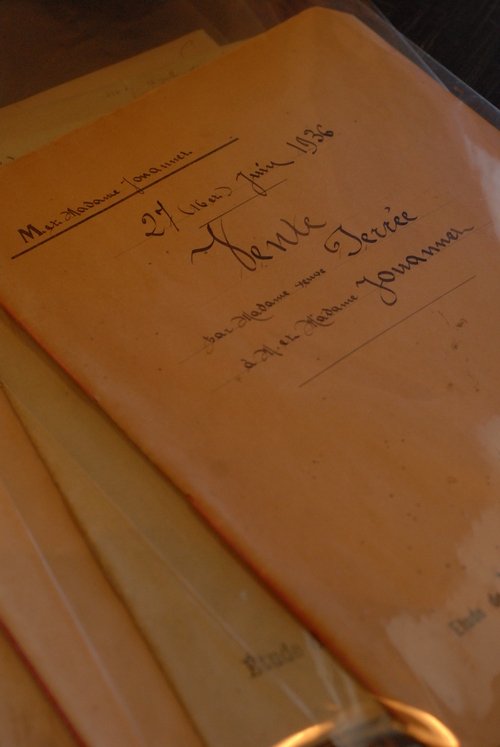 M et Madame Jouannen
27 (16er) Juin 1936
Vente
par Madame veuve Terrée
à M et Madame Jouannen
Etude de
Etude